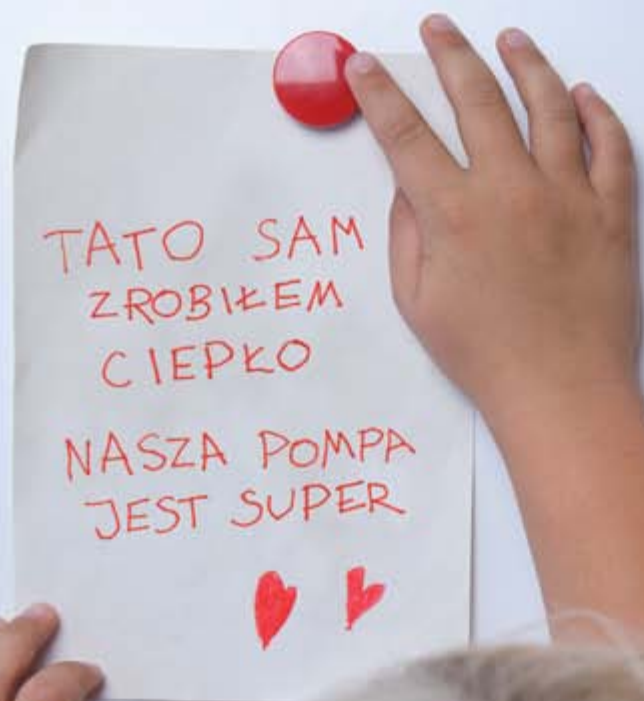 TATO SAM
ZROBIŁEM
CIEPŁO
NASZA POMPA
JEST SUPER